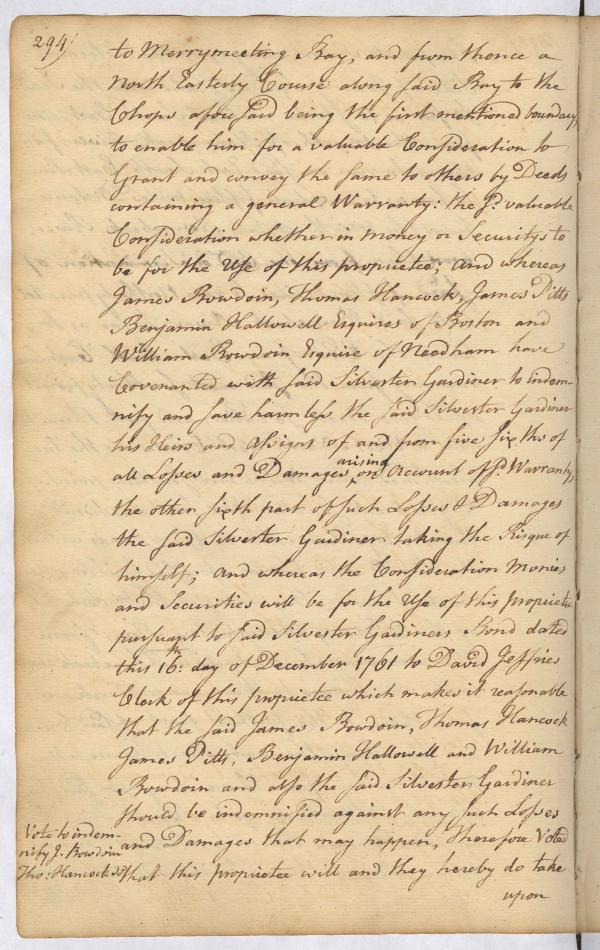 294
to Merrymeeting Bay, and from thence a
North Easterly Course along said Bay to the
Chops aforesaid being the first mentioned boundary,
to enable him for a valuable Consideration to
Grant and convey the same to others by Deeds
containing a general Warranty: the sd. valuable
Consideration whether in money or Securitys to
be for the Use of this proprietee; and whereas
James Bowdoin, Thomas Hancock, James Pitts
Benjamin Hallowell Esquires of Boston and
William Bowdoin Esquire of Needham have
Covenanted with said Silvester Gardiner to indem-
nify and save harmless the said Silvester Gardiner
his Heirs and assigns of and from five six ths of
all Losses and Damages arising on Account of sd. Warranty,
the other sixth part of such Losses & Damages
the said Silvester Gardiner taking the Risque of
himself; and whereas the Consideration Monies
and Securities will be for the Use of this proprietee
pursuant to said Silvester Gardiners Bond dated
this 16th: day of December 1761 to David Jeffries
Clerk of this proprietee which makes it reasonable
that the said James Bowdoin, Thomas Hancock
James Pitts, Benjamin Hallowell and William
Bowdoin and also the said Silvester Gardiner
should be indemnified against any such Losses
and Damages that may happen, Therefore Voted
that this proprietee will and they hereby do take
upon
Vote to indem-
nify J. Bowdoin
Tho: Hancock &c